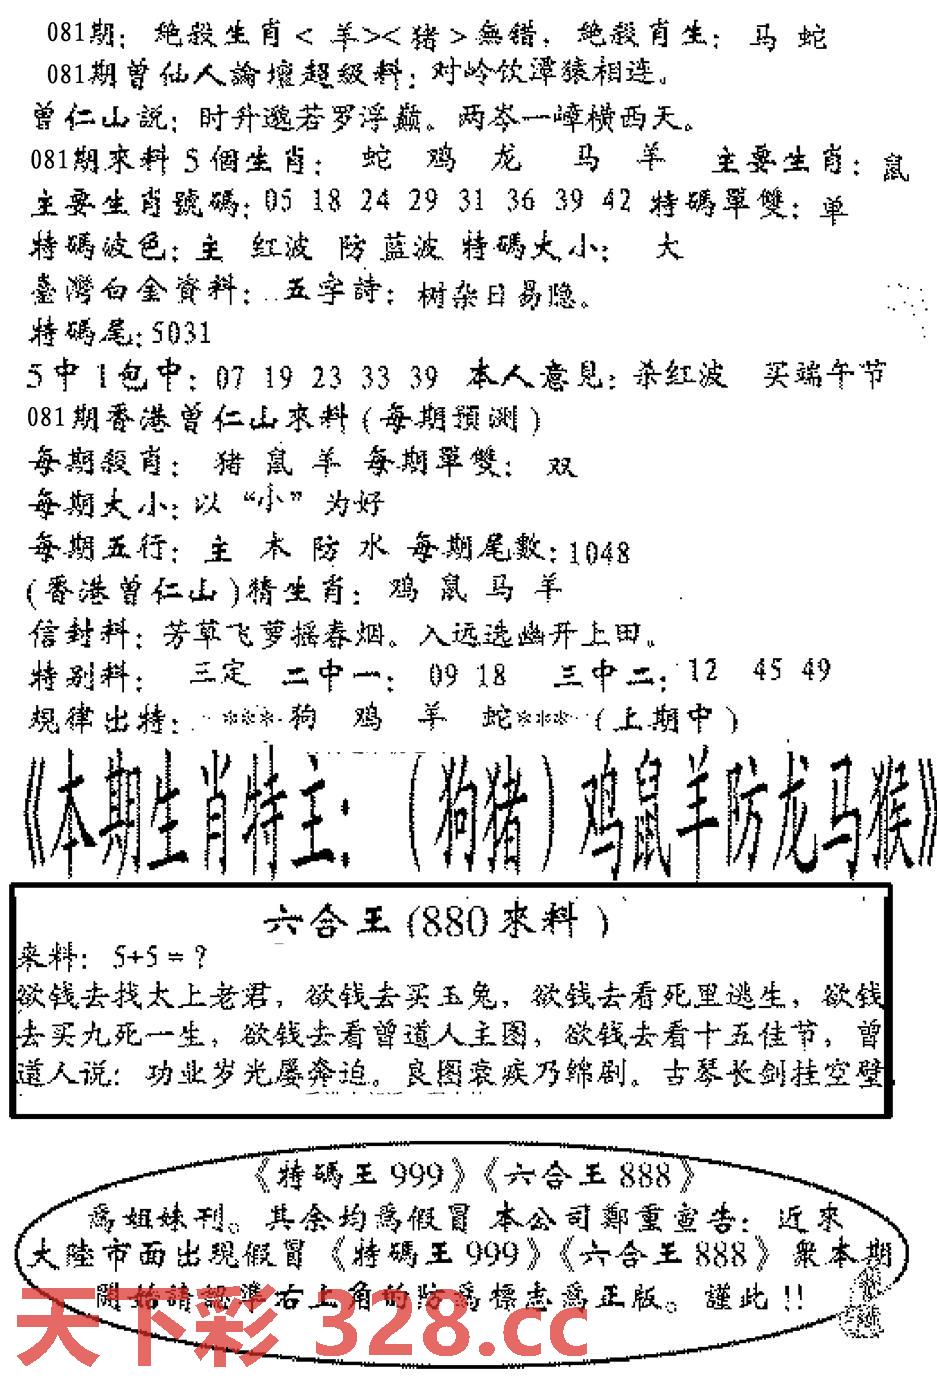 081期：絶殺生肖<羊><猪>無錯，絶殺肖生：马 蛇
081期曾仙人論壇超級料：对岭饮潭猿相连。
曾仁山説：时升邈若罗浮巅。两岑一嶂横西天。
081期來料5個生肖： 蛇 鸡 龙 马 羊 主要生肖：鼠
主要生肖號碼：05 18 24 29 31 36 39 42 特碼單雙：单
特碼波色：主 红波 防 蓝波 特碼大小： 大
臺灣白金資料： 五字詩：树杂日易隐。
特碼尾：5031
5中1包中：07 19 23 33 39 本人意見：杀红波 买端午节
081期香港曾仁山來料(每期預測)
每期殺肖： 猪 鼠 羊 每期單雙： 双
每期大小：以“小”为好
每期五行：主 木 防 水 每期尾數：1048
(香港曾仁山)猜生肖： 鸡 鼠 马 羊
信封料：芳草飞萝摇春烟。入远选幽开上田。
特别料： 三定 二中一： 09 18 三中二：12 45 49
規律出特： ***狗 鸡 羊 蛇***(上期中)
《本期生肖特主：（狗猪）鸡鼠羊防龙马猴》
六合王(880來料)
來料： 5+5=?
欲钱去找太上老君，欲钱去买玉兔，欲钱去看死里逃生，欲钱
去买九死一生，欲钱去看曾道人主图，欲钱去看十五佳节，曾
道人说：功业岁光屡奔迫。良图衰疾乃绵剧。古琴长剑挂空壁.
《特碼王999》《六合王888》
爲姐妹刊。其余均爲假冒 本公司鄭重宣告：近來
大陸市面出現假冒《特碼王999》《六合王888》衆本期
開始請認準右上角的防爲標志爲正版。謹此!!
天下彩 328.cc